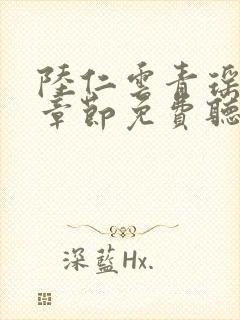 陸仁雲青瑶
章節免費聽
深藍Hx.